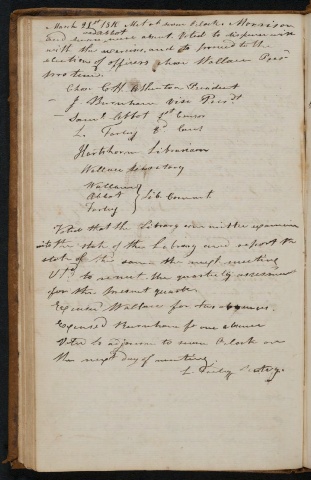 March 21st 1811 Met at nine Oclock Morrison
and Abbot
and were absent Voted to dispense
with the exercise, and to proceed to the
elections of officers chose Wallace Pres
pro tempe.
Chose C H Atherton President
J. Burnham vice Presdt
Saml Abbot 1st Censor
L. Farley 2d Cens
Hartshorn Librarian
Wallace Secretary
Wallace
Abbot } Lib Commit
Farley
Voted that the Library committee examine
into the state of the Library and report the
state of the same the next meeting
Vtd to remit the quarterly assessment
for the present quarter.
Excused Wallace for
Excused Burnham for one absence
Vtd to adjourn to nine Oclock on
the next day of meeting.
L. Farley Secty.